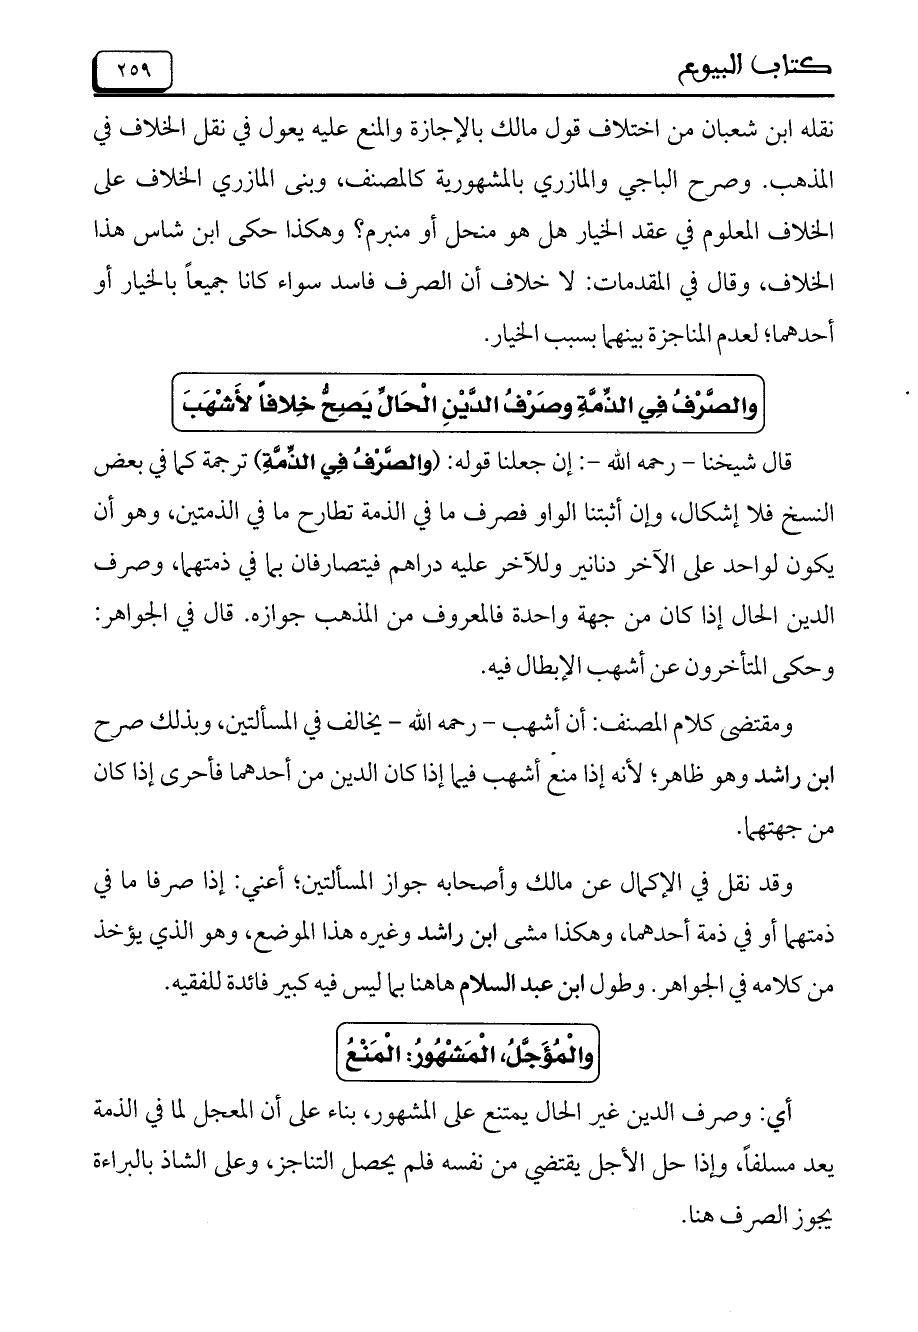 كتاب البيوع
٢٥٩
نقله ابن شعبان من اختلاف قول مالك بالإجازة والمنع عليه يعول في نقل الخلاف في
المذهب. وصرح الباجي والمازري بالمشهورية كالمصنف، وبنى المازري الخلاف على
الخلاف المعلوم في عقد الخيار هل هو منحل أو منبرم؟ وهكذا حكى ابن شاس هذا
الخلاف، وقال في المقدمات: لا خلاف أن الصرف فاسد سواء كانا جميعاً بالخيار أو
أحدهما؛ لعدم المناجزة بينهما بسبب الخيار.
والصَّرْفُ فِي الذِّمَّةِ وصَرْفُ الدَّيْنِ الْحَالِّ يَصِحُّ خِلافاً لأَشْهَبَ
قال شيخنا - رحمه الله -: إن جعلنا قوله: (والصَّرْفُ فِي الذِّمَّةِ) ترجمة كما في بعض
النسخ فلا إشكال، وإن أثبتنا الواو فصرف ما في الذمة تطارح ما في الذمتين، وهو أن
يكون لواحد على الآخر دنانير وللآخر عليه دراهم فيتصارفان بما في ذمتهما، وصرف
الدين الحال إذا كان من جهة واحدة فالمعروف من المذهب جوازه. قال في الجواهر:
وحكى المتأخرون عن أشهب الإبطال فيه.
ومقتضى كلام المصنف: أن أشهب - رحمه الله - يخالف في المسألتين، وبذلك صرح
ابن راشد وهو ظاهر؛ لأنه إذا منع أشهب فيما إذا كان الدين من أحدهما فأحرى إذا كان
من جهتهما.
وقد نقل في الإكمال عن مالك وأصحابه جواز المسألتين؛ أعني: إذا صرفا ما في
ذمتهما أو في ذمة أحدهما، وهكذا مشى ابن راشد وغيره هذا الموضع، وهو الذي يؤخذ
من كلامه في الجواهر. وطول ابن عبد السلام هاهنا بما ليس فيه كبير فائدة للفقيه.
والْمُؤَجَّلُ، الْمَشْهُورُ: الْمَنْعُ
أي: وصرف الدين غير الحال يمتنع على المشهور، بناء على أن المعجل لما في الذمة
يعد مسلفاً، وإذا حل الأجل يقتضي من نفسه فلم يحصل التناجز، وعلى الشاذ بالبراءة
يجوز الصرف هنا.